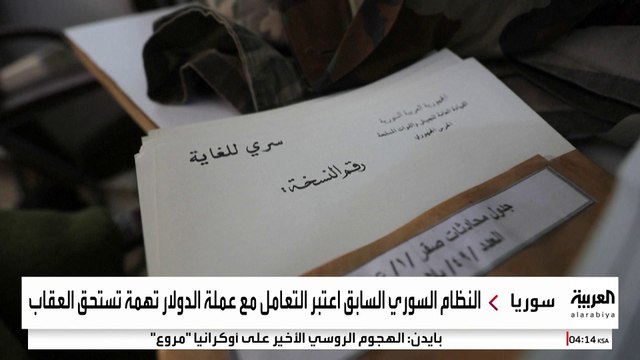 الجمهورية العربية السورية
القيادة العامة للجيش والقوات المسلحة
الحرس الجمهوري
سري للغاية
رقم النسخة:
جدول محادثات صقر /١/
العدد /٤٩/
العربية
alarabiya
سوريا
النظام السوري السابق اعتبر التعامل مع عملة الدولار تهمة تستحق العقاب
04:14 KSA
بايدن: الهجوم الروسي الأخير على أوكرانيا "مروع"